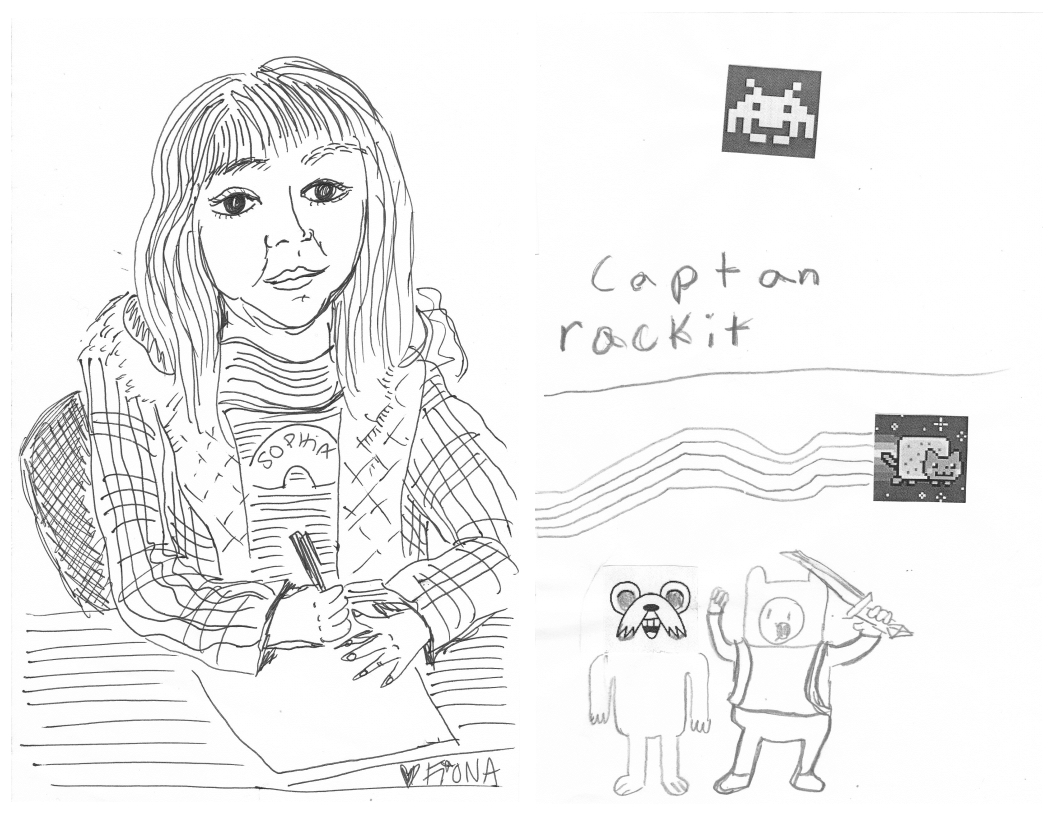 SOPHiA
♥ FiONA
Captan
rockit